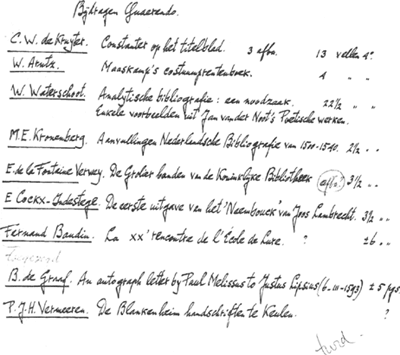 Bijdragen Quaerendo.
C. W. de Kruyter. Constanter op het titelblad. 3 afbn. 13 vellen 4º
W. Arntz. Maaskamp's costuumprentenboek. 4 " "
W. Waterschoot. Analytische bibliografie: een noodzaak. 22½ " "
Enkele voorbeelden uit Jan van der Noot's Poëtische werken.
M. E. Kronenberg. Aanvullingen Nederlandsche Bibliografie van 1500-1540. 2½ " "
E. de la Fontaine Verwey. De Grolier banden van de Koninklijke Bibliotheek (afb.!) 3½ " "
E. Cockx-Indestege. De eerste uitgave van het 'Naembouck' van Joos Lambrecht. 3½ " "
Fernand Baudin. La XXe rencontre de l'École de Lure. ? ±6 " "
B. de Graaf. An autograph letter by Paul Melissus to Justus Lipsius (6-III-1593) ± 5 pgs.
P. J. H. Vermeeren. De Blankenheim handschriften te Keulen. ?